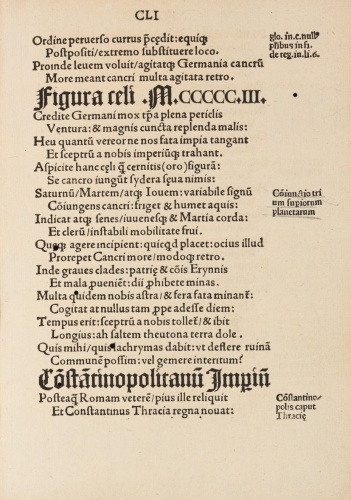 CLI
Ordine peruerso currus p̃cędit: equiq̃
Postpositi/extremo substituere loco.
Proinde leuem voluit/agitatq̃ Germania cancrū
More meant cancri multa agitata retro.
glo. in.c. null
pſibus in fi.
de reg.in.li.6.
Figura celi .M.CCCCC.III.
Credite Germani mox tp̃a plena periclis
Ventura: & magnis cuncta replenda malis:
Heu quantū vereor ne nos fata impia tangant
Et sceptrū a nobis imperiūq̃ trahant.
Aspicite hanc cęli q̃ cernitis(oro)figurā:
Se cancro iungūt sydera sęua nimis:
Saturnū/Martem/atq̃ Iouem: variabile signū
Cōiungens cancri: friget & humet aquis:
Indicat atq̃ senes/iuuenesq̃ & Martia corda:
Et clerū/instabili mobilitate frui.
Cōiunctio triū
um supiorum
planetarum
Quęq̃ agere incipient: quicq̃d placet: ocius illud
Prorepet Cancri more/modoq̃ retro.
Inde graues clades: patrię & cōis Erynnis
Et mala pueniēt: dii phibete minas.
Multa quidem nobis astra/& fera fata minant̃:
Cogitat at nullus tam ppe adesse diem:
Tempus erit: sceptrū a nobis tollet̃/& ibit
Longius: ah saltem theutona terra dole.
Quis mihi/quis lachrymas dabit: vt deflere ruinā
Communē possim: vel gemere interitum?
Cōstātinopolitanū Impiū
Posteaq̃ Romam veterē/pius ille reliquit
Et Constantinus Thracia regna nouat:
Cōstantino
polis caput
Thracię